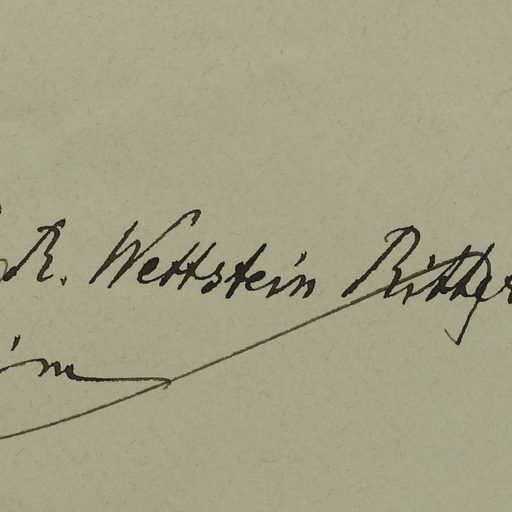 R. Wettstein Ritter
im